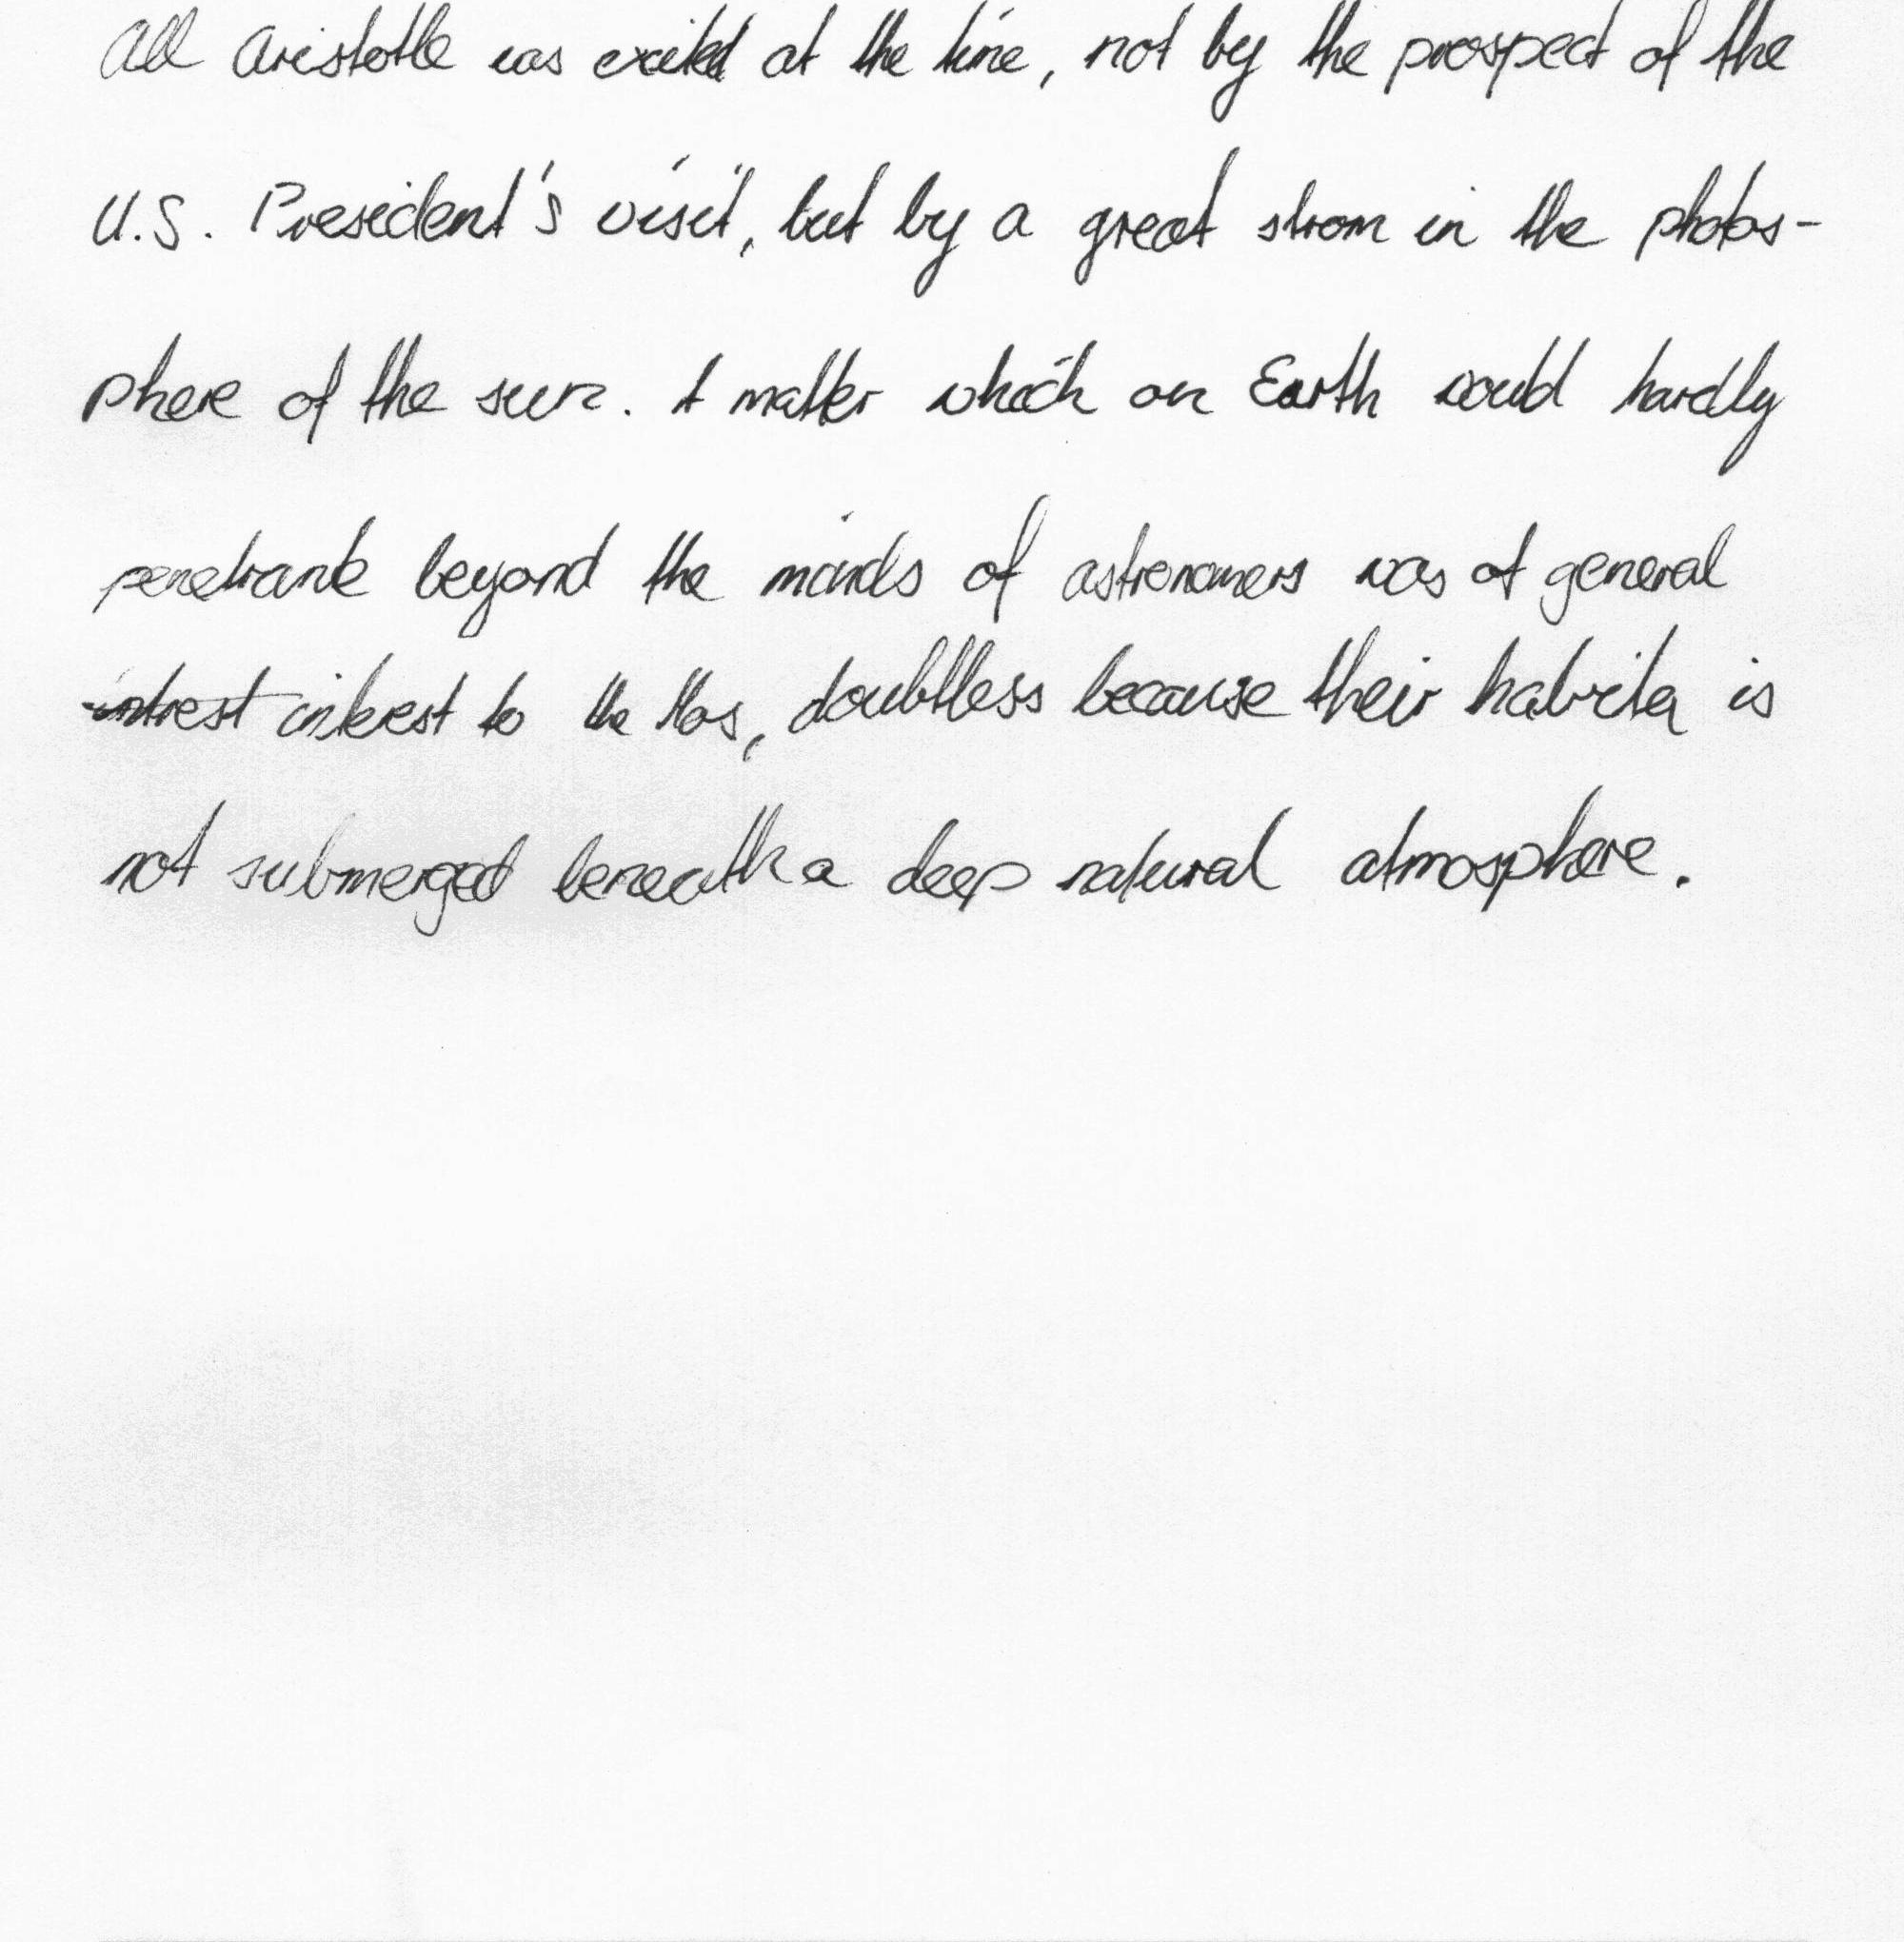 All Aristotle was excited at the time, not by the prospect of the
U.S. President's visit, but by a great strom in the photos-
phere of the sun. A matter which on Earth would hardly
penetrante beyond the minds of astronomers was of general
intrest interest to the Hos, doubtless because their habita is
not submerged beneath a deep natural atmosphere.